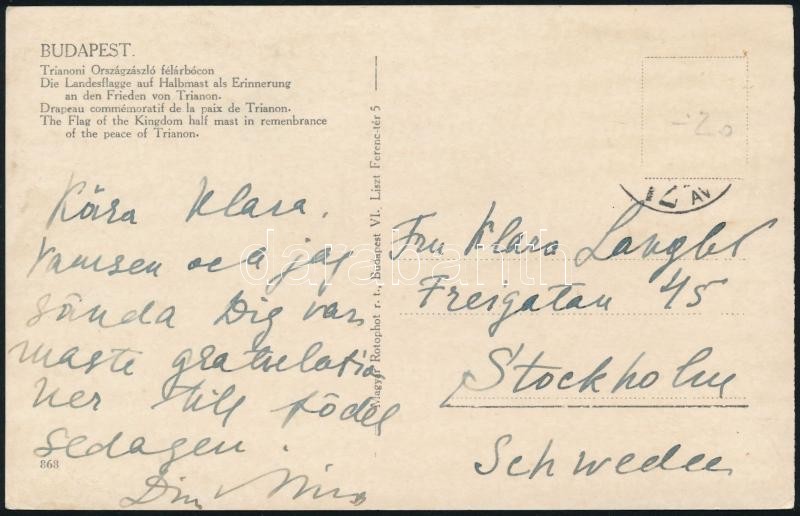 BUDAPEST.
Trianoni Országzászló félárbócon
Die Landesflagge auf Halbmast als Erinnerung
an den Frieden von Trianon.
Drapeau commémoratif de la paix de Trianon.
The Flag of the Kingdom half mast in remenbrance
of the peace of Trianon.
Kära Klara.
och jag
sända Dig var
maste gratulatio
ner till födel
sedagen.
Din
868
Magyar Rotophot r. t., Budapest VI., Liszt Ferenc-tér 5
-20
Fru Klara
45
Stockholm
Schweden
darabanth